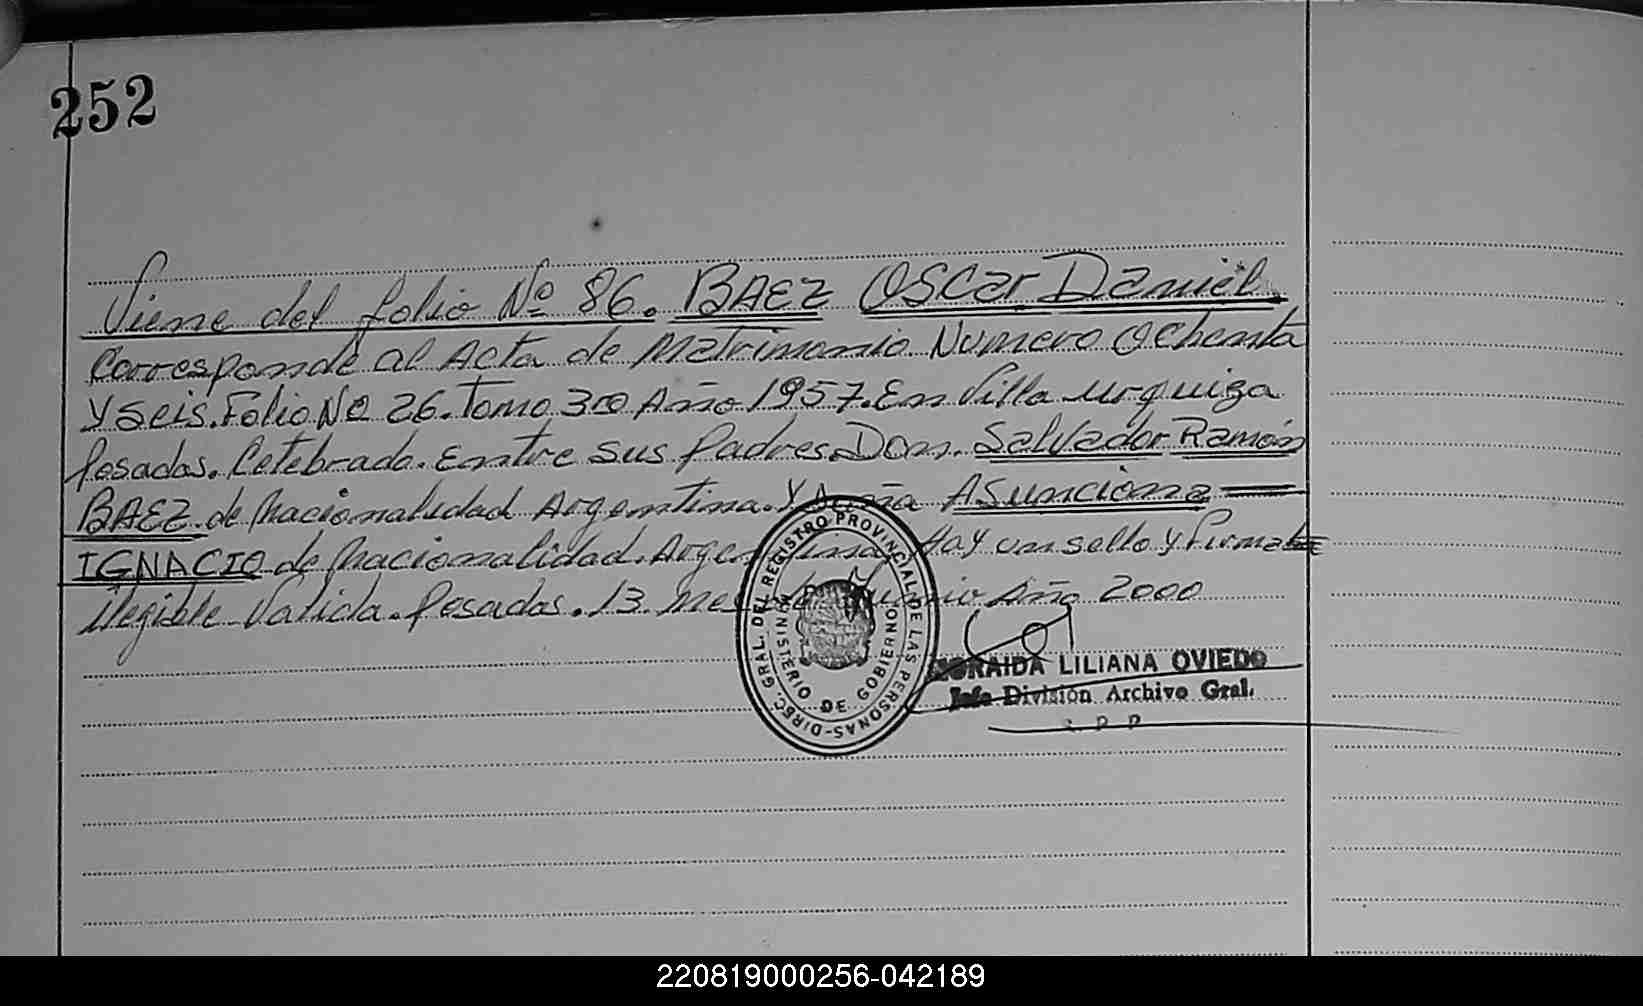 252
Viene del folio Nº 86. BAEZ OSCar Daniel
Corresponde al Acta de Matrimonio Numero Ochenta
y seis. Folio Nº 26. Tomo 3ro Año 1957. En Villa urquiza
Posadas. Celebrado. Entre sus Padres Don. Salvador Ramón
BAEZ. de Nacionalidad Argentina. Y Doña ASunciona
IGNACIO de Nacionalidad. Argentina. Hay un sello y firma
ilegible Valida. Posadas. 13 Mes de Año 2000
DIREC. GRAL. DEL REGISTRO PROVINCIAL DE LAS PERSONAS
MINISTERIO DE GOBIERNO
LILIANA OVIEDO
Jefa División Archivo Gral.
R. P. P.
220819000256-042189